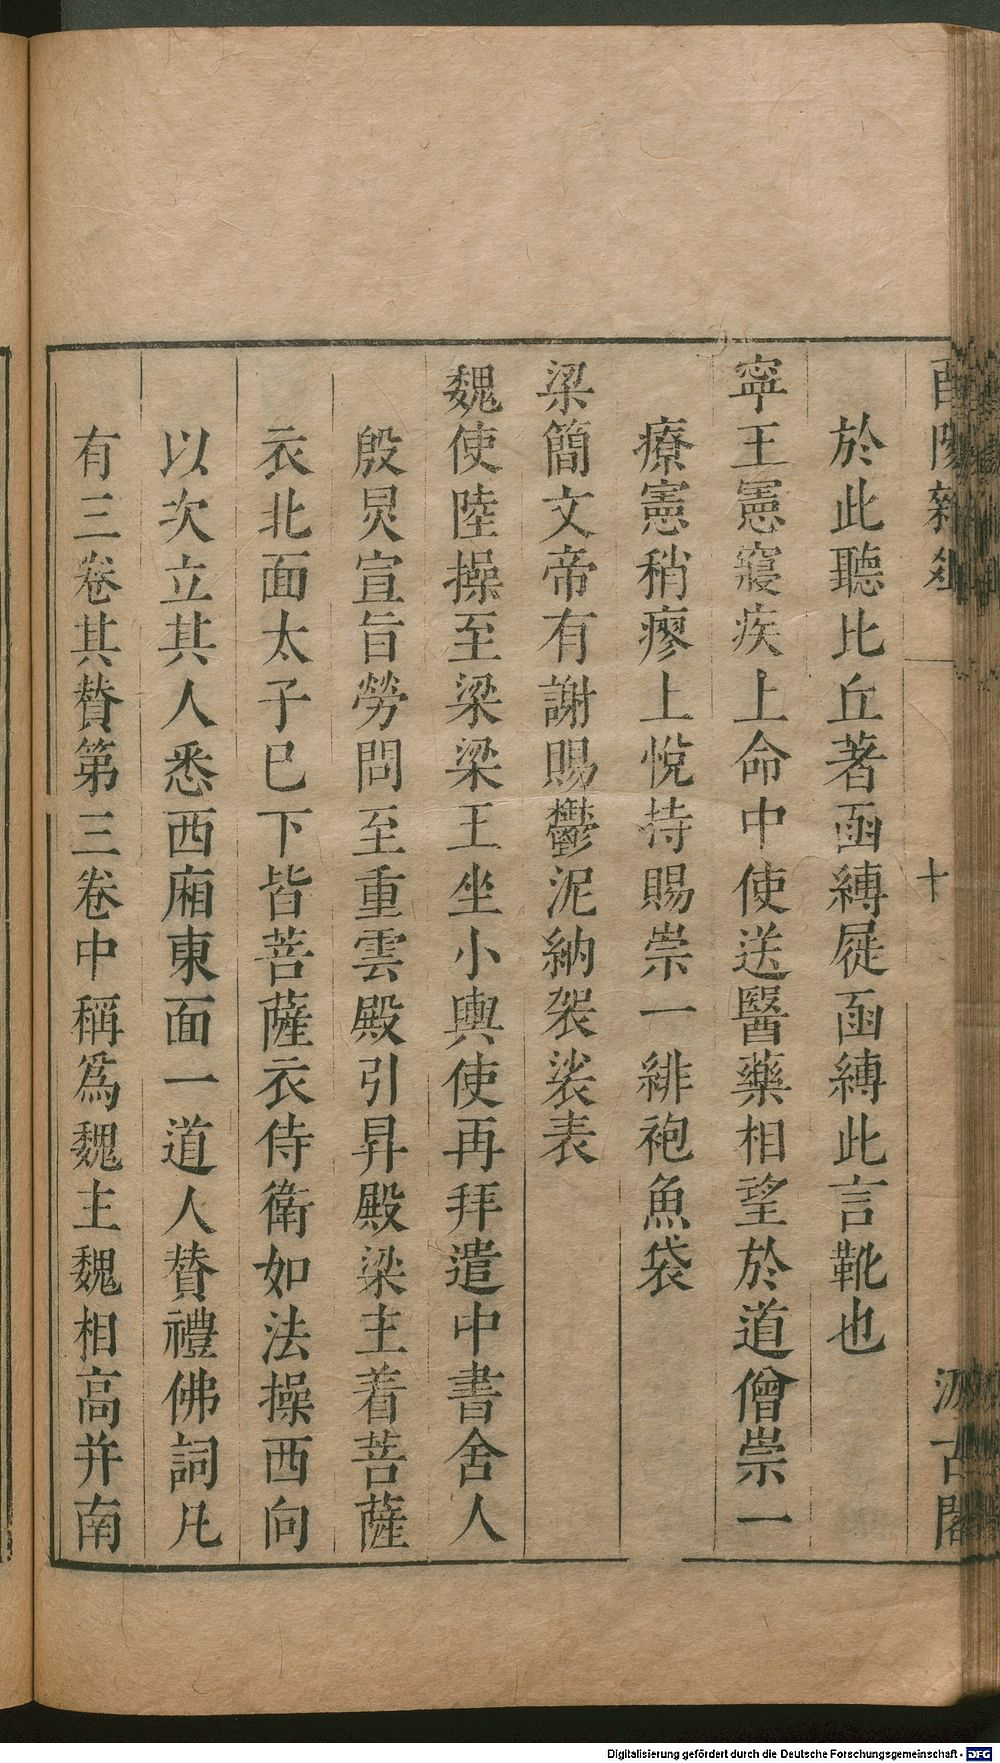 酉陽雜俎
十
汲古閣
於此聽比丘著函縛屣函縛此言靴也
寧王憲寢疾上命中使送醫藥相望於道僧崇一
療憲稍瘳上悅持賜崇一緋袍魚袋
梁簡文帝有謝賜鬱泥納袈裟表
魏使陸操至梁梁王坐小輿使再拜遣中書舍人
殷炅宣旨勞問至重雲殿引昇殿梁主着菩薩
衣北面太子已下皆菩薩衣侍衛如法操西向
以次立其人悉西廂東面一道人贊禮佛詞凡
有三卷其贊第三卷中稱爲魏主魏相高并南
Digitalisierung gefördert durch die Deutsche Forschungsgemeinschaft - DFG